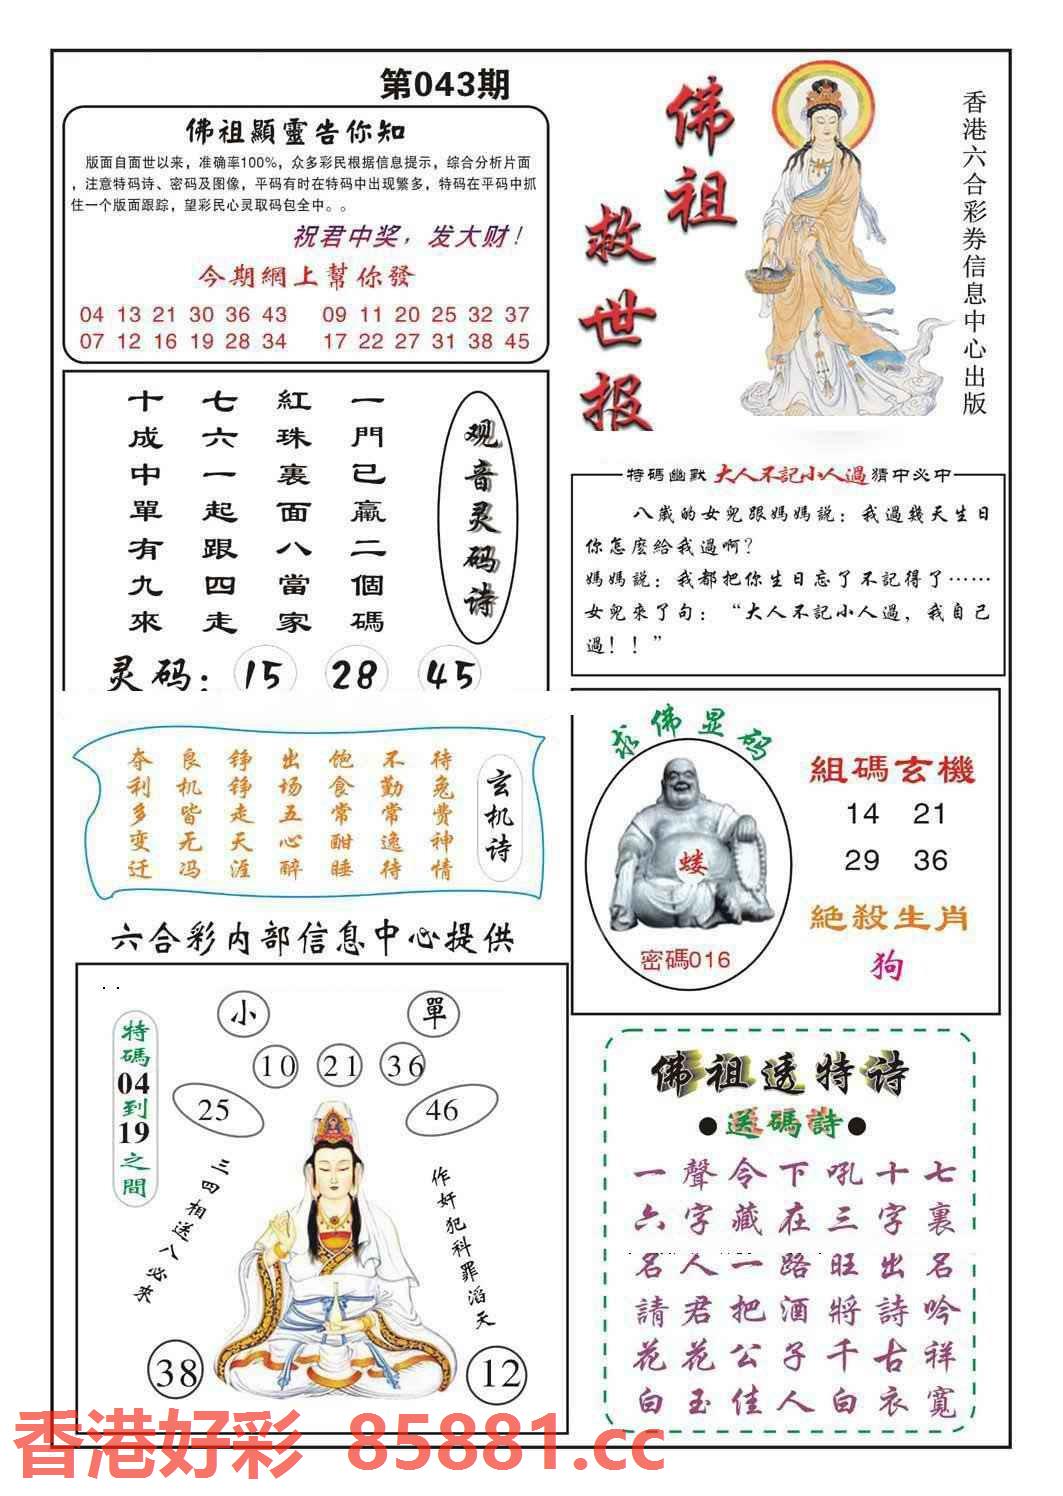 第043期
佛祖顯靈告你知
版面自面世以来，准确率100%，众多彩民根据信息提示，综合分析片面
，注意特码诗、密码及图像，平码有时在特码中出现繁多，特码在平码中抓
住一个版面跟踪，望彩民心灵取码包全中。。
祝君中奖，发大财！
今期網上幫你發
04 13 21 30 36 43 09 11 20 25 32 37
07 12 16 19 28 34 17 22 27 31 38 45
佛祖
救世报
香港六合彩券信息中心出版
观音灵码诗
一門已贏二個碼
紅珠裏面八當家
七六一起跟四走
十成中單有九來
灵码：15 28 45
特碼幽默 大人不記小人過 猜中必中
八歲的女兒跟媽媽説：我過幾天生日
你怎麽給我過啊？
媽媽説：我都把你生日忘了不記得了……
女兒來了句：“大人不記小人過，我自己
過！！”
玄机诗
待兔费神情
不勤常逸待
饱食常酣睡
出场五心醉
铮铮走天涯
良机皆无冯
夺利多变迁
求佛显码
蝼
密碼016
組碼玄機
14 21
29 36
絶殺生肖
狗
六合彩内部信息中心提供
特碼04到19之間
小 單
10 21 36
25 46
三四相送八必來
作奸犯科罪滔天
38 12
佛祖透特诗
●送碼詩●
一聲令下吼十七
六字藏在三字裏
名人一路旺出名
請君把酒將詩吟
花花公子千古祥
白玉佳人白衣寬
香港好彩 85881.cc